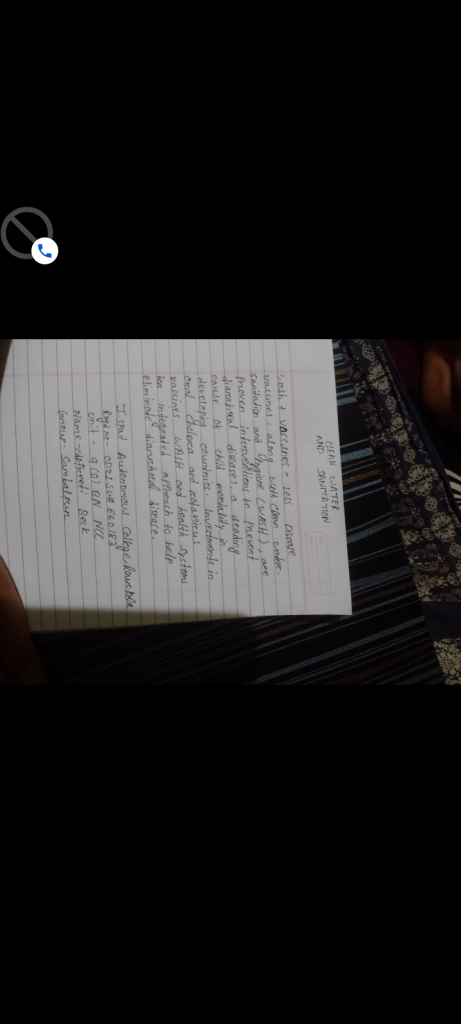 CLEAN WATER
AND SANITATION
Wash + vaccines = Less Disease
vaccines, along with clean water,
sanitation and hygiene (WASH), are
proven interventions to prevent
diarrheal disease, a leading
cause of child mortality in
developing countries. Investments in
oral cholera and rotavirus
vaccines WASH and health systems
integrated approach to help
eliminate diarrhoeal disease.
Ispat Autonomous College, Rourkela
Regd no-
Unit - 9 (O) BN NCC
Name - Beck
Group - Sambalpur